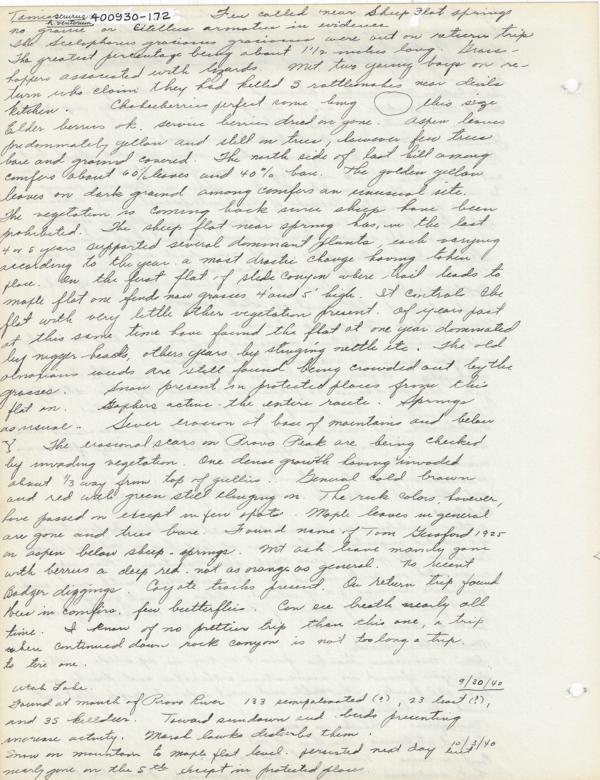 Tamiasciurus 400930-172 Few called near Sheep Flat springs
h. ventorum
no grouse or Citellus armatus in evidence
The Sceloporus graciosus graciosus were out on return trip
The greatest percentage being about 1 1/2 inches long. Grass-
hoppers associated with lizards. Met two young boys on re-
turn who claim they had killed 3 rattlesnakes near devils
kitchen. Chokecherries perfect some being this size
Elder berries ok, service berries dried on gone. Aspen leaves
predominately yellow and still on trees, however few trees
bare and ground covered. The north side of last hill among
conifers about 60% leaves and 40% bare. The golden yellow
leaves on dark ground among conifers an unusual site.
The vegetation is coming back since sheep have been
prohibited. The sheep flat near spring has, in the last
4 or 5 years supported several dominant plants, each varying
according to the year a most drastic change having taken
place. On the first flat of slide canyon where trail leads to
maple flat one finds now grasses 4' and 5' high. It controls the
flat with very little other vegetation present. Of years past
at this same time have found the flat at one year dominated
by nigger heads, others years by stinging nettle etc. The old
obnoxious weeds are still found being crowded out by the
grasses. Snow present in protected places from this
flat on. Gophers active the entire route. Springs
as usual. Sever erosion at base of mountains and below
The erosional scars on Provo Peak are being checked
by invading vegetation. One dense growth having invaded
about 1/3 way from top of gullies. General cold brown
and red with green still clinging on. The rich colors, however,
have passed on except in few spots. Maple leaves in general
are gone and trees bare. Found name of Tom 1925
on aspen below sheep-springs. Mt ash leave mainly gone
with berries a deep red - not as orange as general. No recent
Badger diggings. Coyote tracks present. On return trip found
in conifers. few butterflies. Can see breath nearly all
time. I know of no prettier trip than this one, a trip
where continued down rock canyon is not too long a trip.
to tire one.
9/30/40
Utah Lake.
Found at mouth of Provo River 133 semipalmated (?), 23 least (?),
and 35 killdeer. Toward sundown and birds presenting
increase activity. Marsh hawks disturbs them.
10/3/40
Snow on mountain to maple flat level. persisted next day but
nearly gone on the 5th except in protected places.